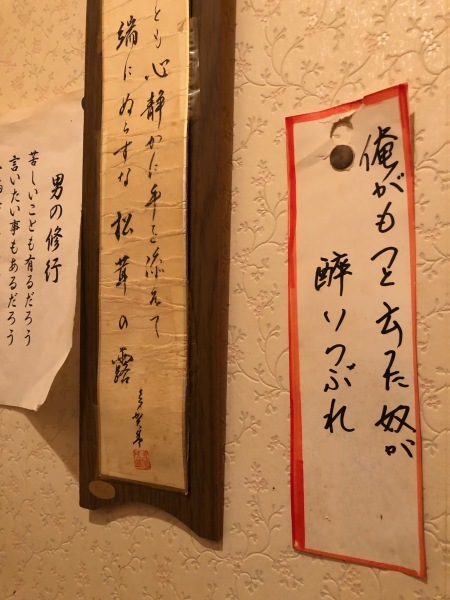 俺がもつと云った奴が
酔いつぶれ
とも心静かに手を添えて
端にぬらすな松茸の露
男の修行
苦しいことも有るだろう
言いたい事もあるだろう